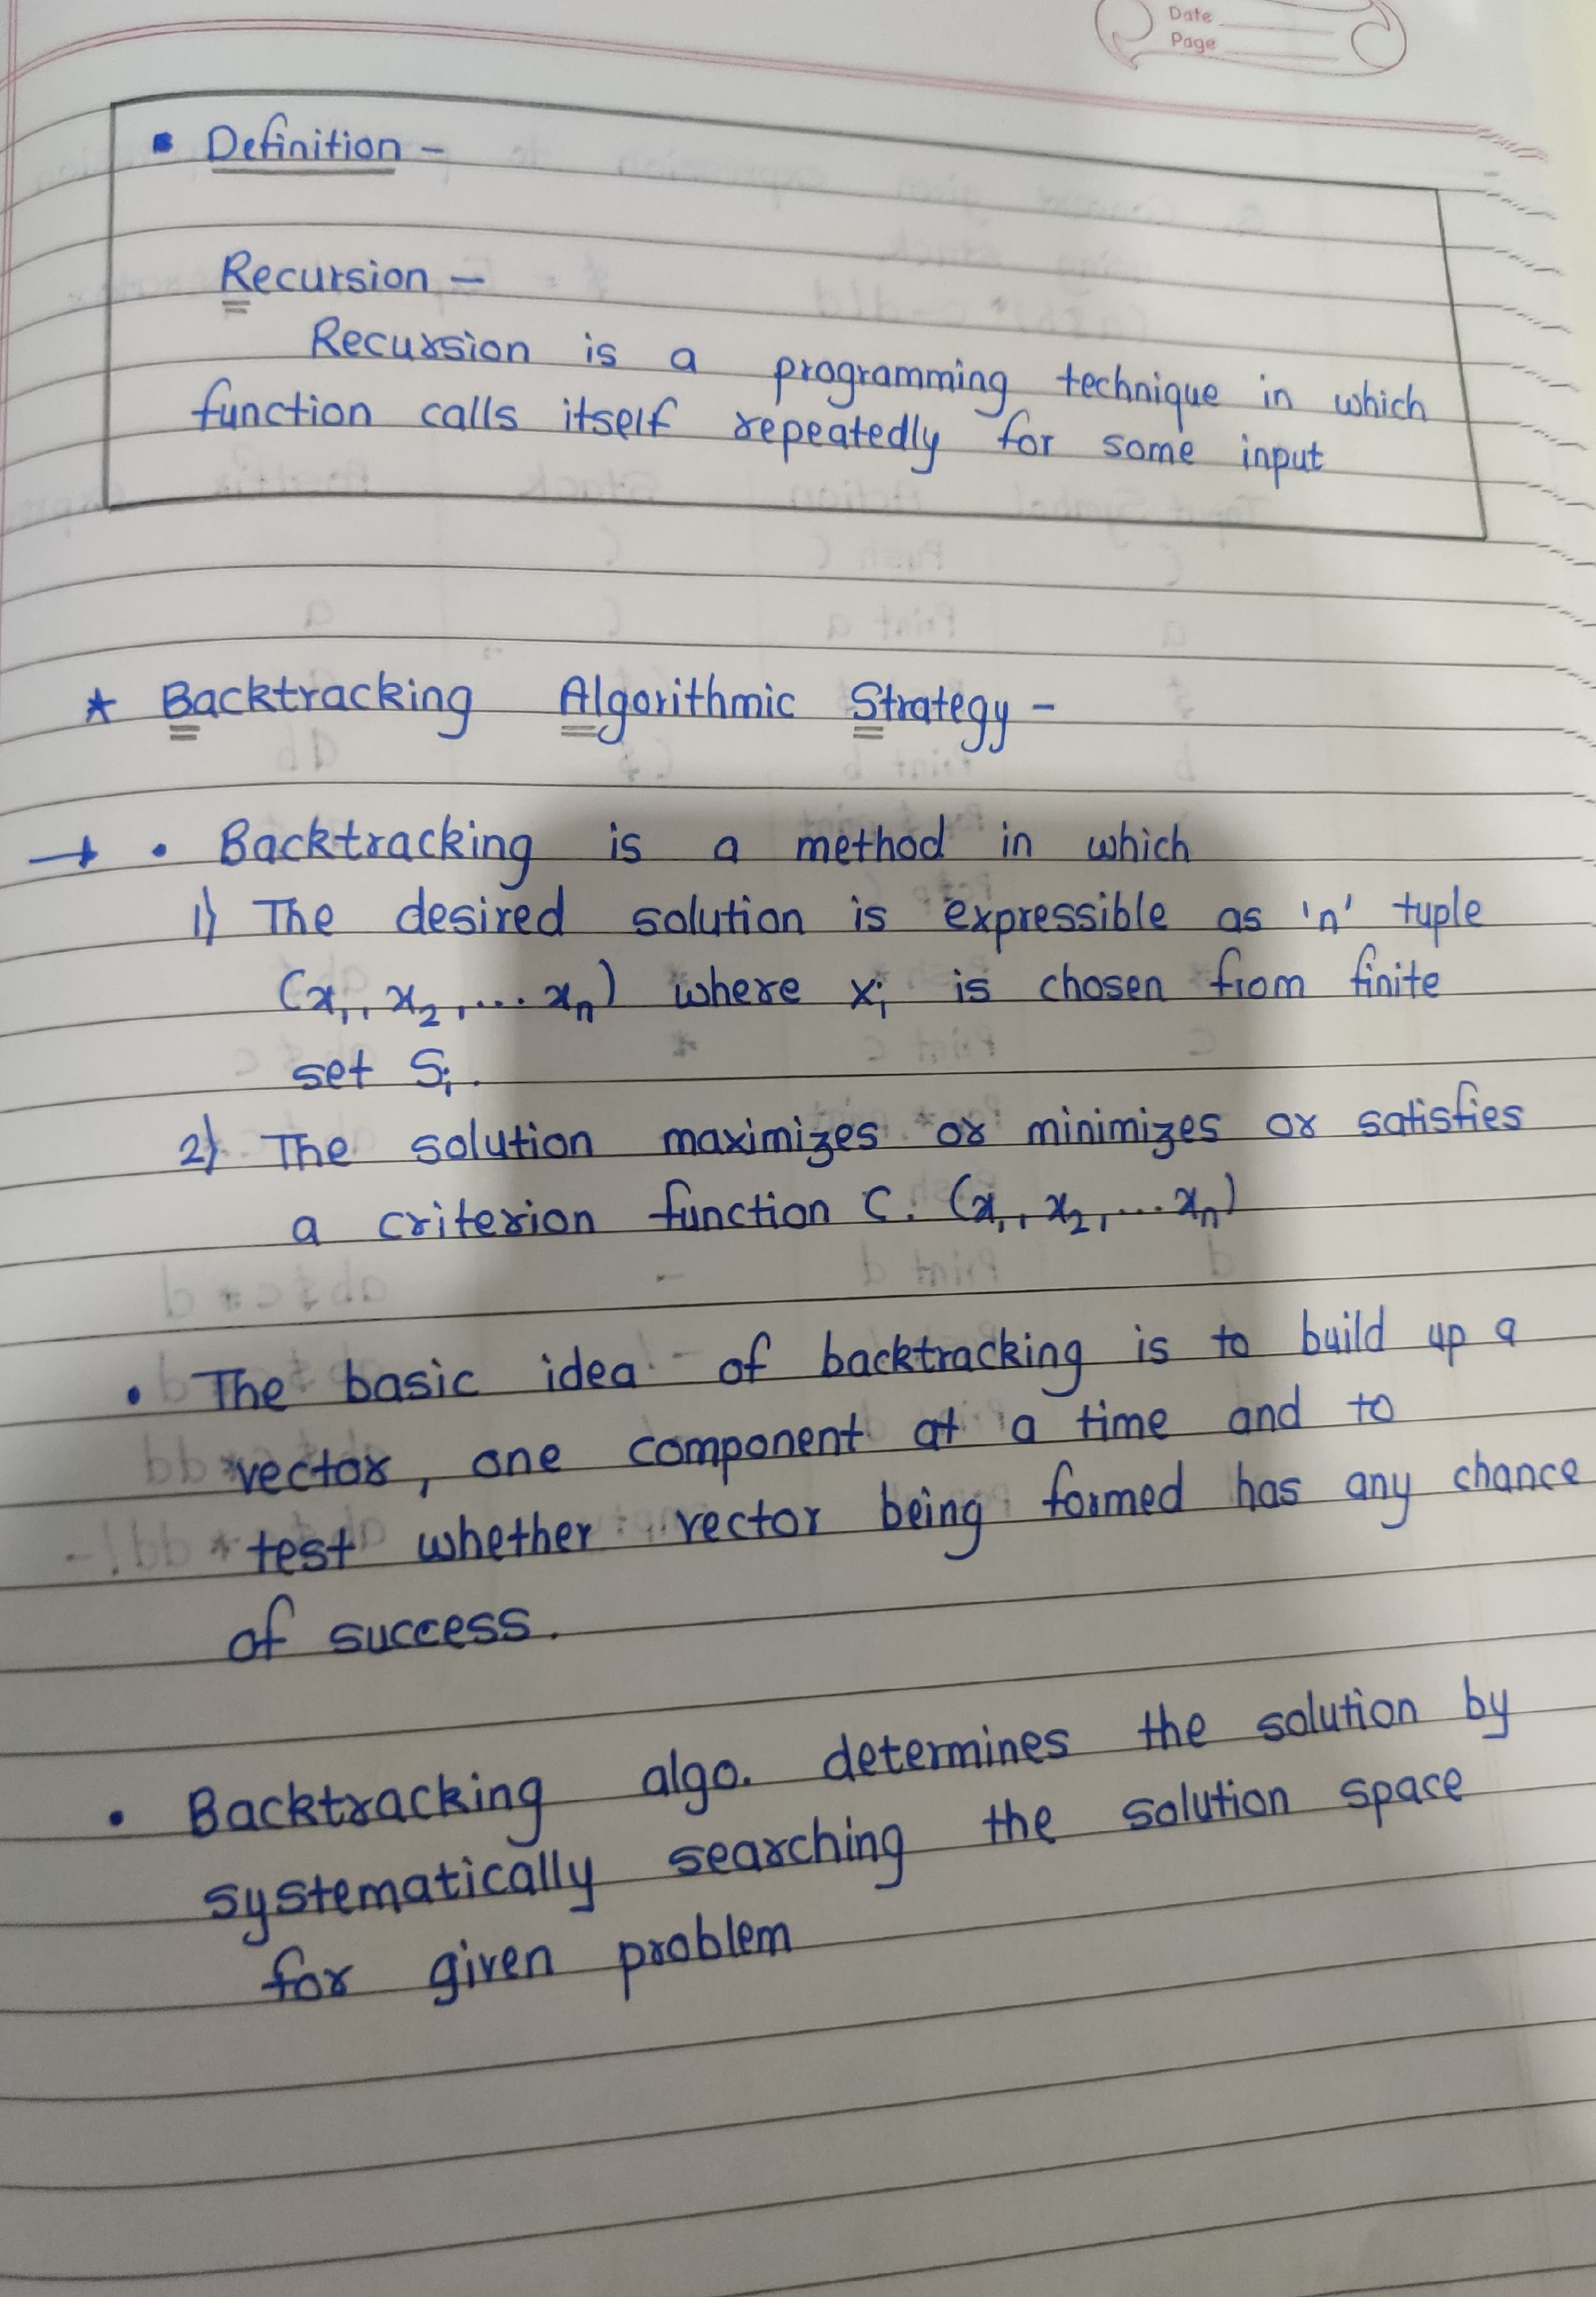 Date
Page
▪ Definition -
Recursion -
Recursion is a programming technique in which
function calls itself repeatedly for some input
* Backtracking Algorithmic Strategy -
→ • Backtracking is a method in which
1) The desired solution is expressible as 'n' tuple
(x₁, x₂, ... xₙ) where xᵢ is chosen from finite
set Sᵢ.
2) The solution maximizes or minimizes or satisfies
a criterion function C. (x₁, x₂, ... xₙ)
• The basic idea of backtracking is to build up a
vector, one component at a time and to
test whether vector being formed has any chance
of success.
• Backtracking algo. determines the solution by
systematically searching the solution space
for given problem